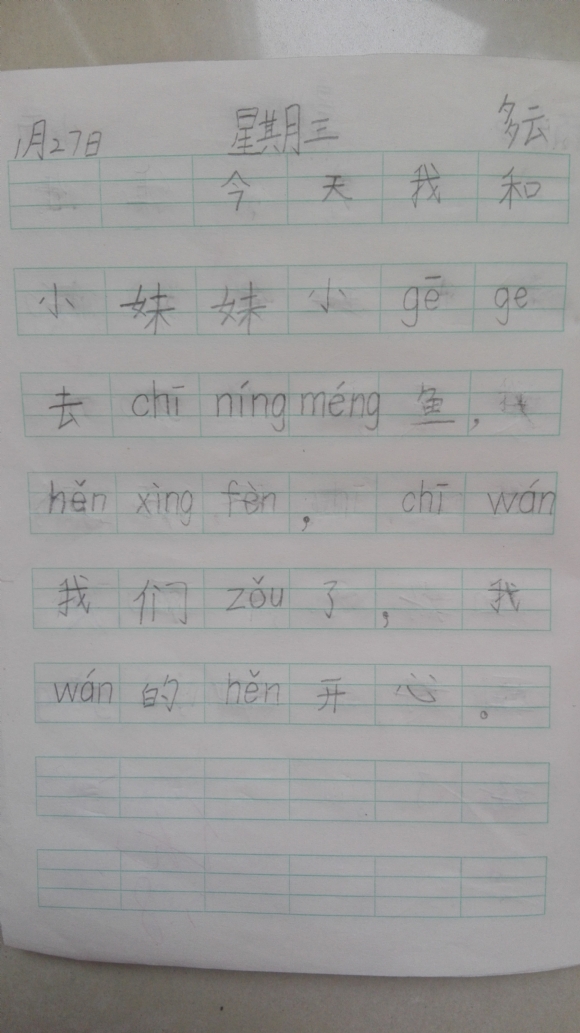 1月27日 星期三 多云
今天我和
小妹妹小gē ge
去chī níng méng鱼，我
hěn xìng fèn， chī wán
我们zǒu了， 我
wán的hěn开心。